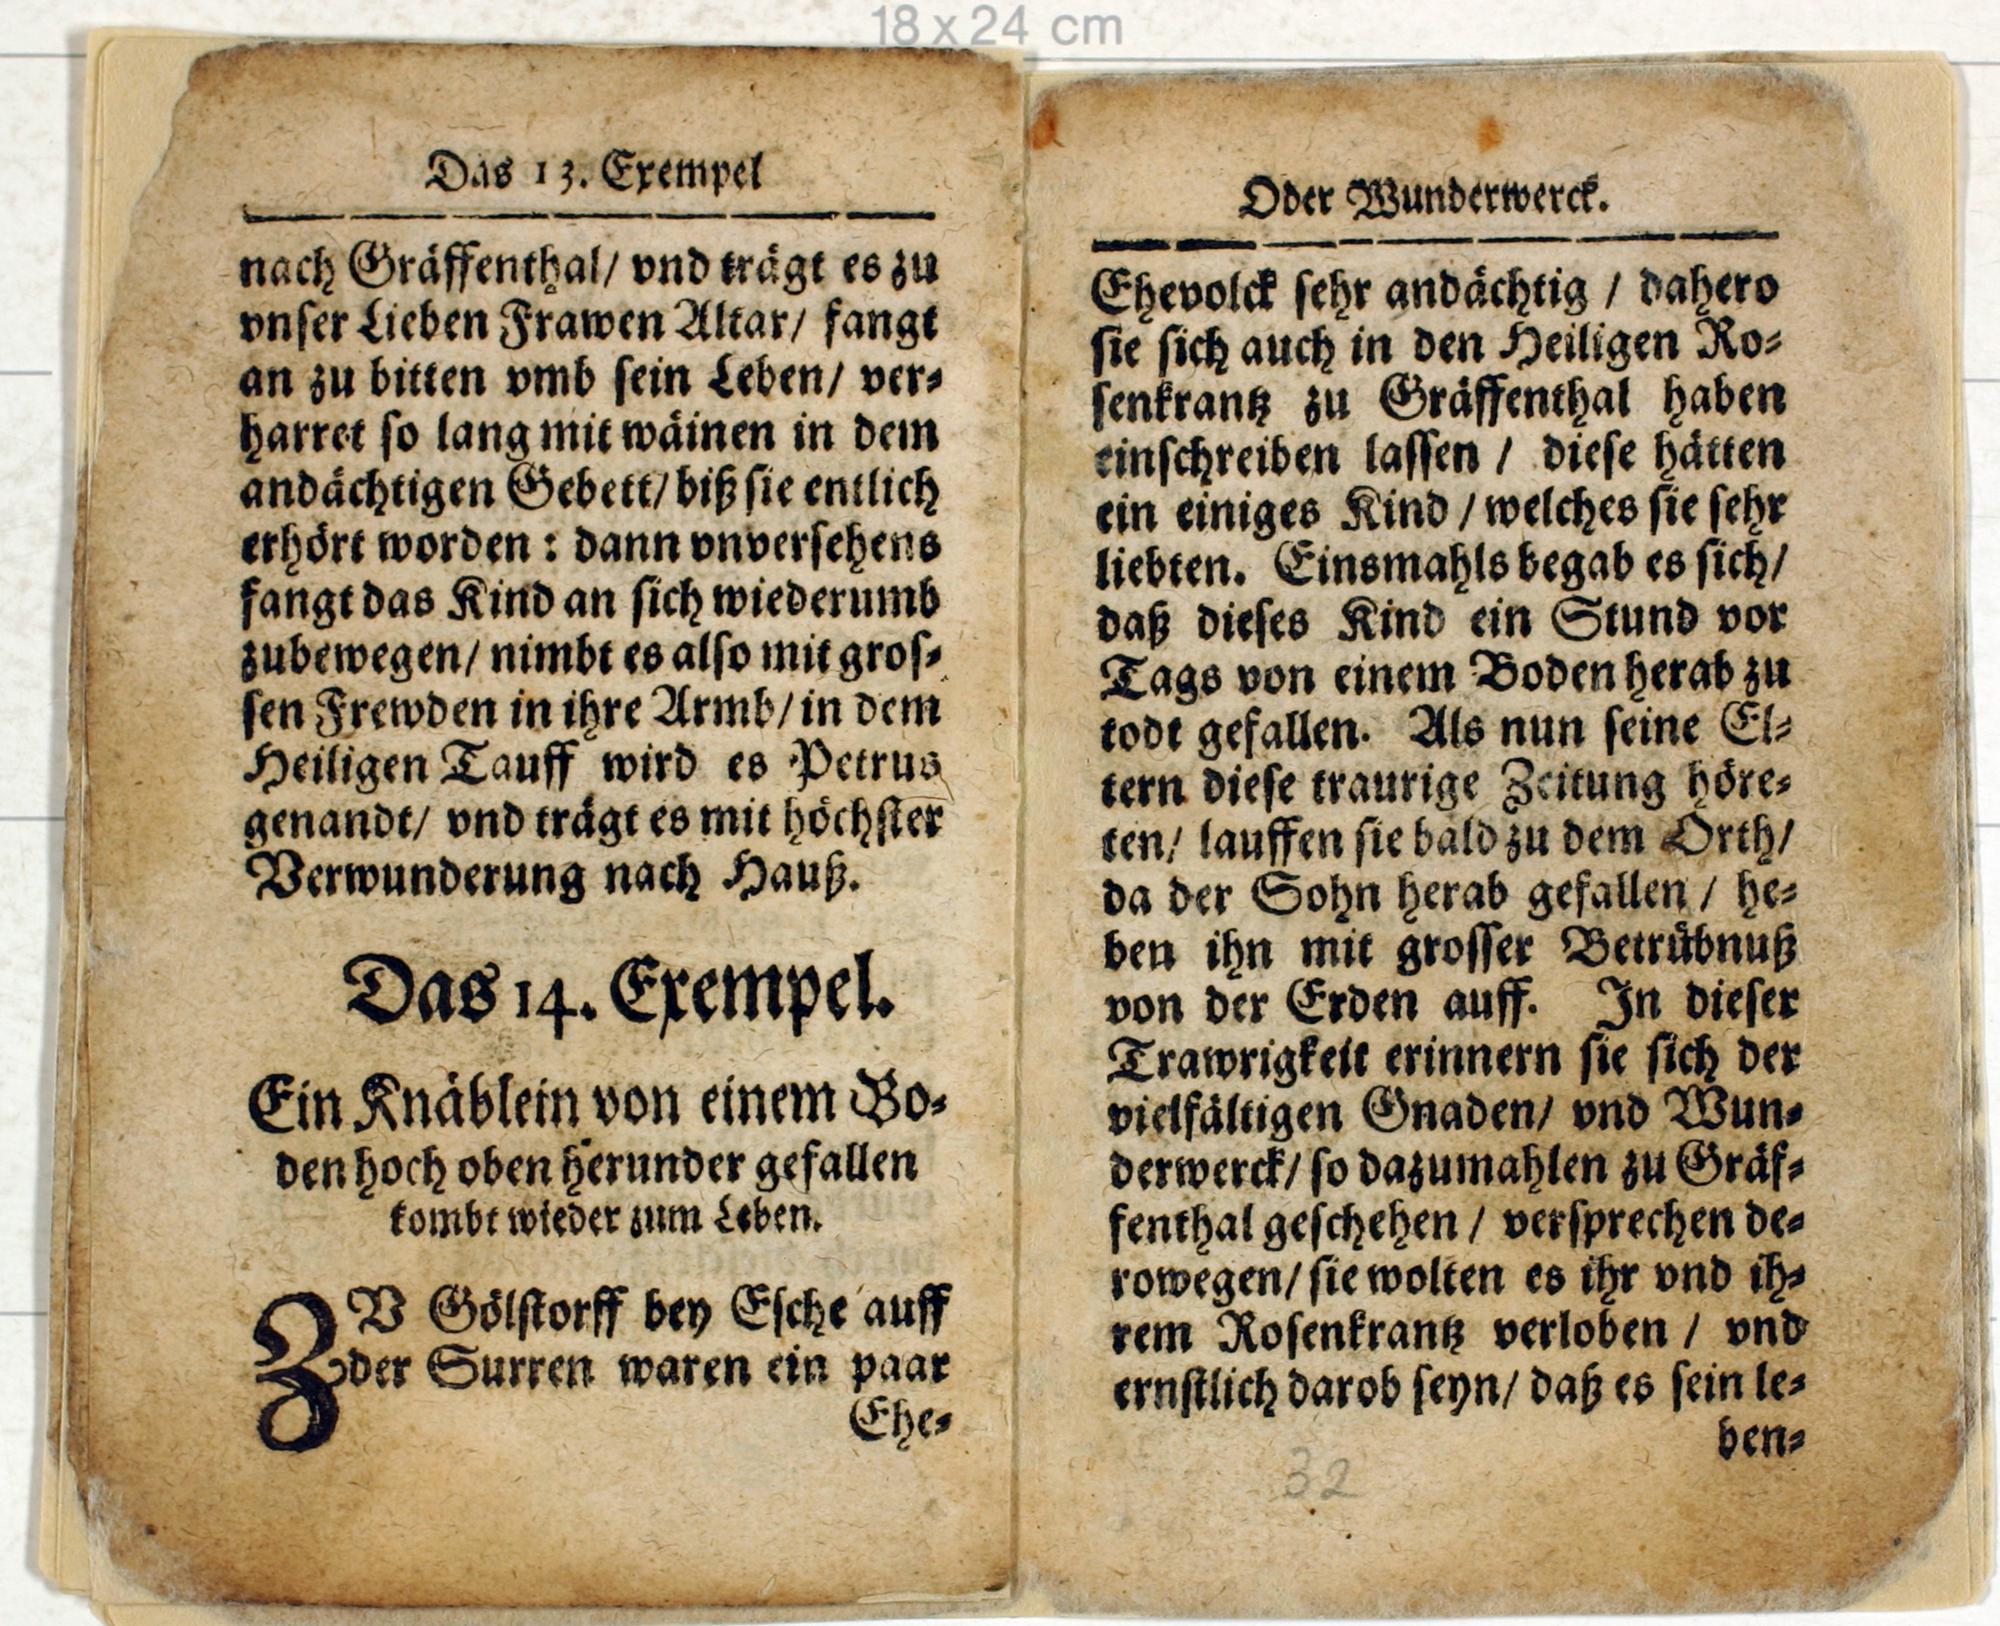 18 x 24 cm
Das 13. Exempel
nach Gräffenthal/ vnd trägt es zu
vnser Lieben Frawen Altar/ fangt
an zu bitten vmb sein Leben/ ver-
harret so lang mit wäinen in dem
andächtigen Gebett/ biß sie entlich
erhört worden : dann vnversehens
fangt das Kind an sich wiederumb
zubewegen/ nimbt es also mit gros-
sen Frewden in ihre Armb/ in dem
Heiligen Tauff wird es Petrus
genandt/ vnd trägt es mit höchster
Verwunderung nach Hauß.
Das 14. Exempel.
Ein Knäblein von einem Bo-
den hoch oben herunder gefallen
kombt wieder zum Leben.
ZV Gölstorff bey Esche auff
der Surren waren ein paar
Ehe-
Oder Wunderwerck.
Ehevolck sehr andächtig / dahero
sie sich auch in den Heiligen Ro-
senkrantz zu Gräffenthal haben
einschreiben lassen / diese hätten
ein einiges Kind / welches sie sehr
liebten. Einsmahls begab es sich/
daß dieses Kind ein Stund vor
Tags von einem Boden herab zu
todt gefallen. Als nun seine El-
tern diese traurige Zeitung höre-
ten/ lauffen sie bald zu dem Orth/
da der Sohn herab gefallen / he-
ben ihn mit grosser Betrübnuß
von der Erden auff. In dieser
Trawrigkeit erinnern sie sich der
vielfältigen Gnaden/ vnd Wun-
derwerck/ so dazumahlen zu Gräf-
fenthal geschehen / versprechen de-
rowegen/ sie wolten es ihr vnd ih-
rem Rosenkrantz verloben / vnd
ernstlich darob seyn/ daß es sein le-
ben-
32